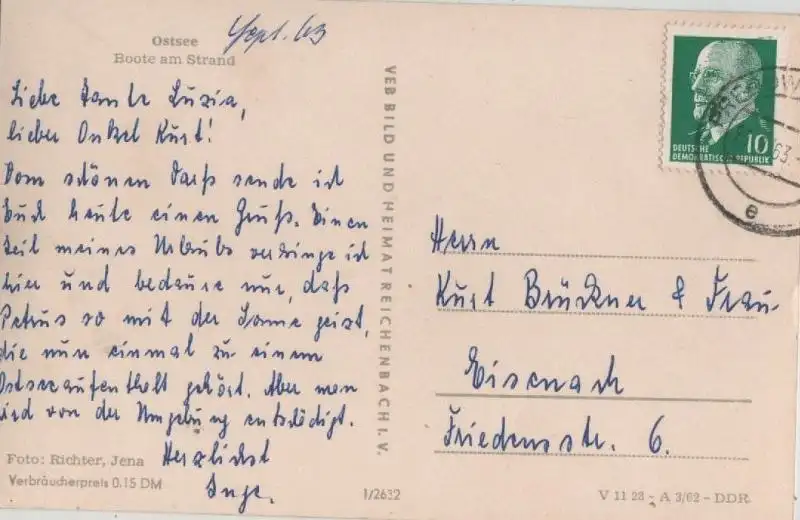 Ostsee
Boote am Strand
Sept. 63
Liebe Tante Luzia,
lieber Onkel Kurt!
Vom schönen Darß sende ich
Euch heute einen Gruß. Einen
Teil meines Urlaubs verbringe ich
hier und bedaure nur, daß
Petrus so mit der Sonne geizt,
die nun einmal zu einem
Ostseeaufenthalt gehört. Aber man
wird von der Umgebung entschädigt.
Herzlichst
Inge.
Foto: Richter, Jena
Verbraucherpreis 0.15 DM
VEB BILD UND HEIMAT REICHENBACH I. V.
1/2632
10
DEUTSCHE
DEMOKRATISCHE REPUBLIK
63
e
Herrn
Kurt Brückner & Frau
Eisenach
Friedensstr. 6.
V 11 28 - A 3/62 - DDR